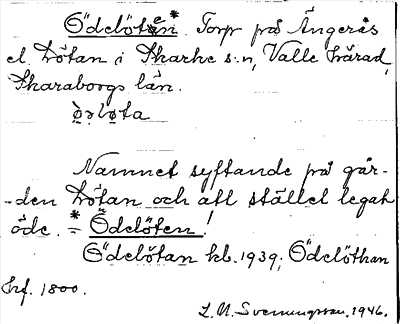 Ödelöten.* Torp på Ängerås
el. Lötan i Skarke s:n, Valle härad,
Skaraborgs län.
Namnet syftande på går-
-den Lötan och att stället legat
öde. * = Ödelöten!
Ödelötan kb. 1939, Ödelöthan
hrf. 1800.
L. M. Svenungsson. 1946.